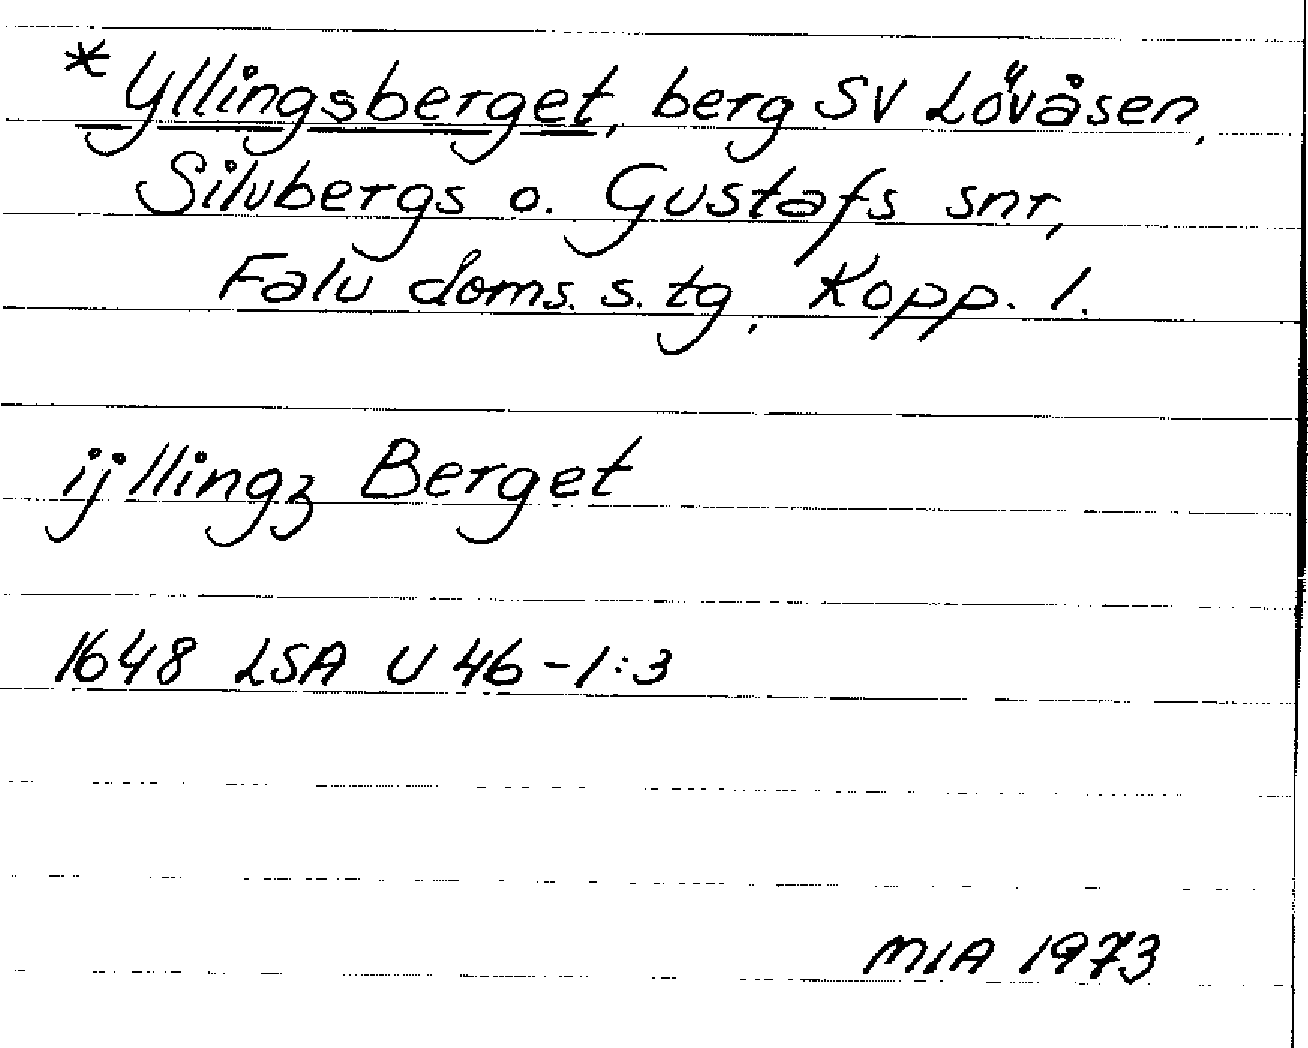 *Yllingsberget, berg SV Lövåsen,
Silvbergs o. Gustafs snr,
Falu doms. s. tg, Kopp. l.
ijllingz Berget
1648 LSA U 46-1:3
MIA 1973